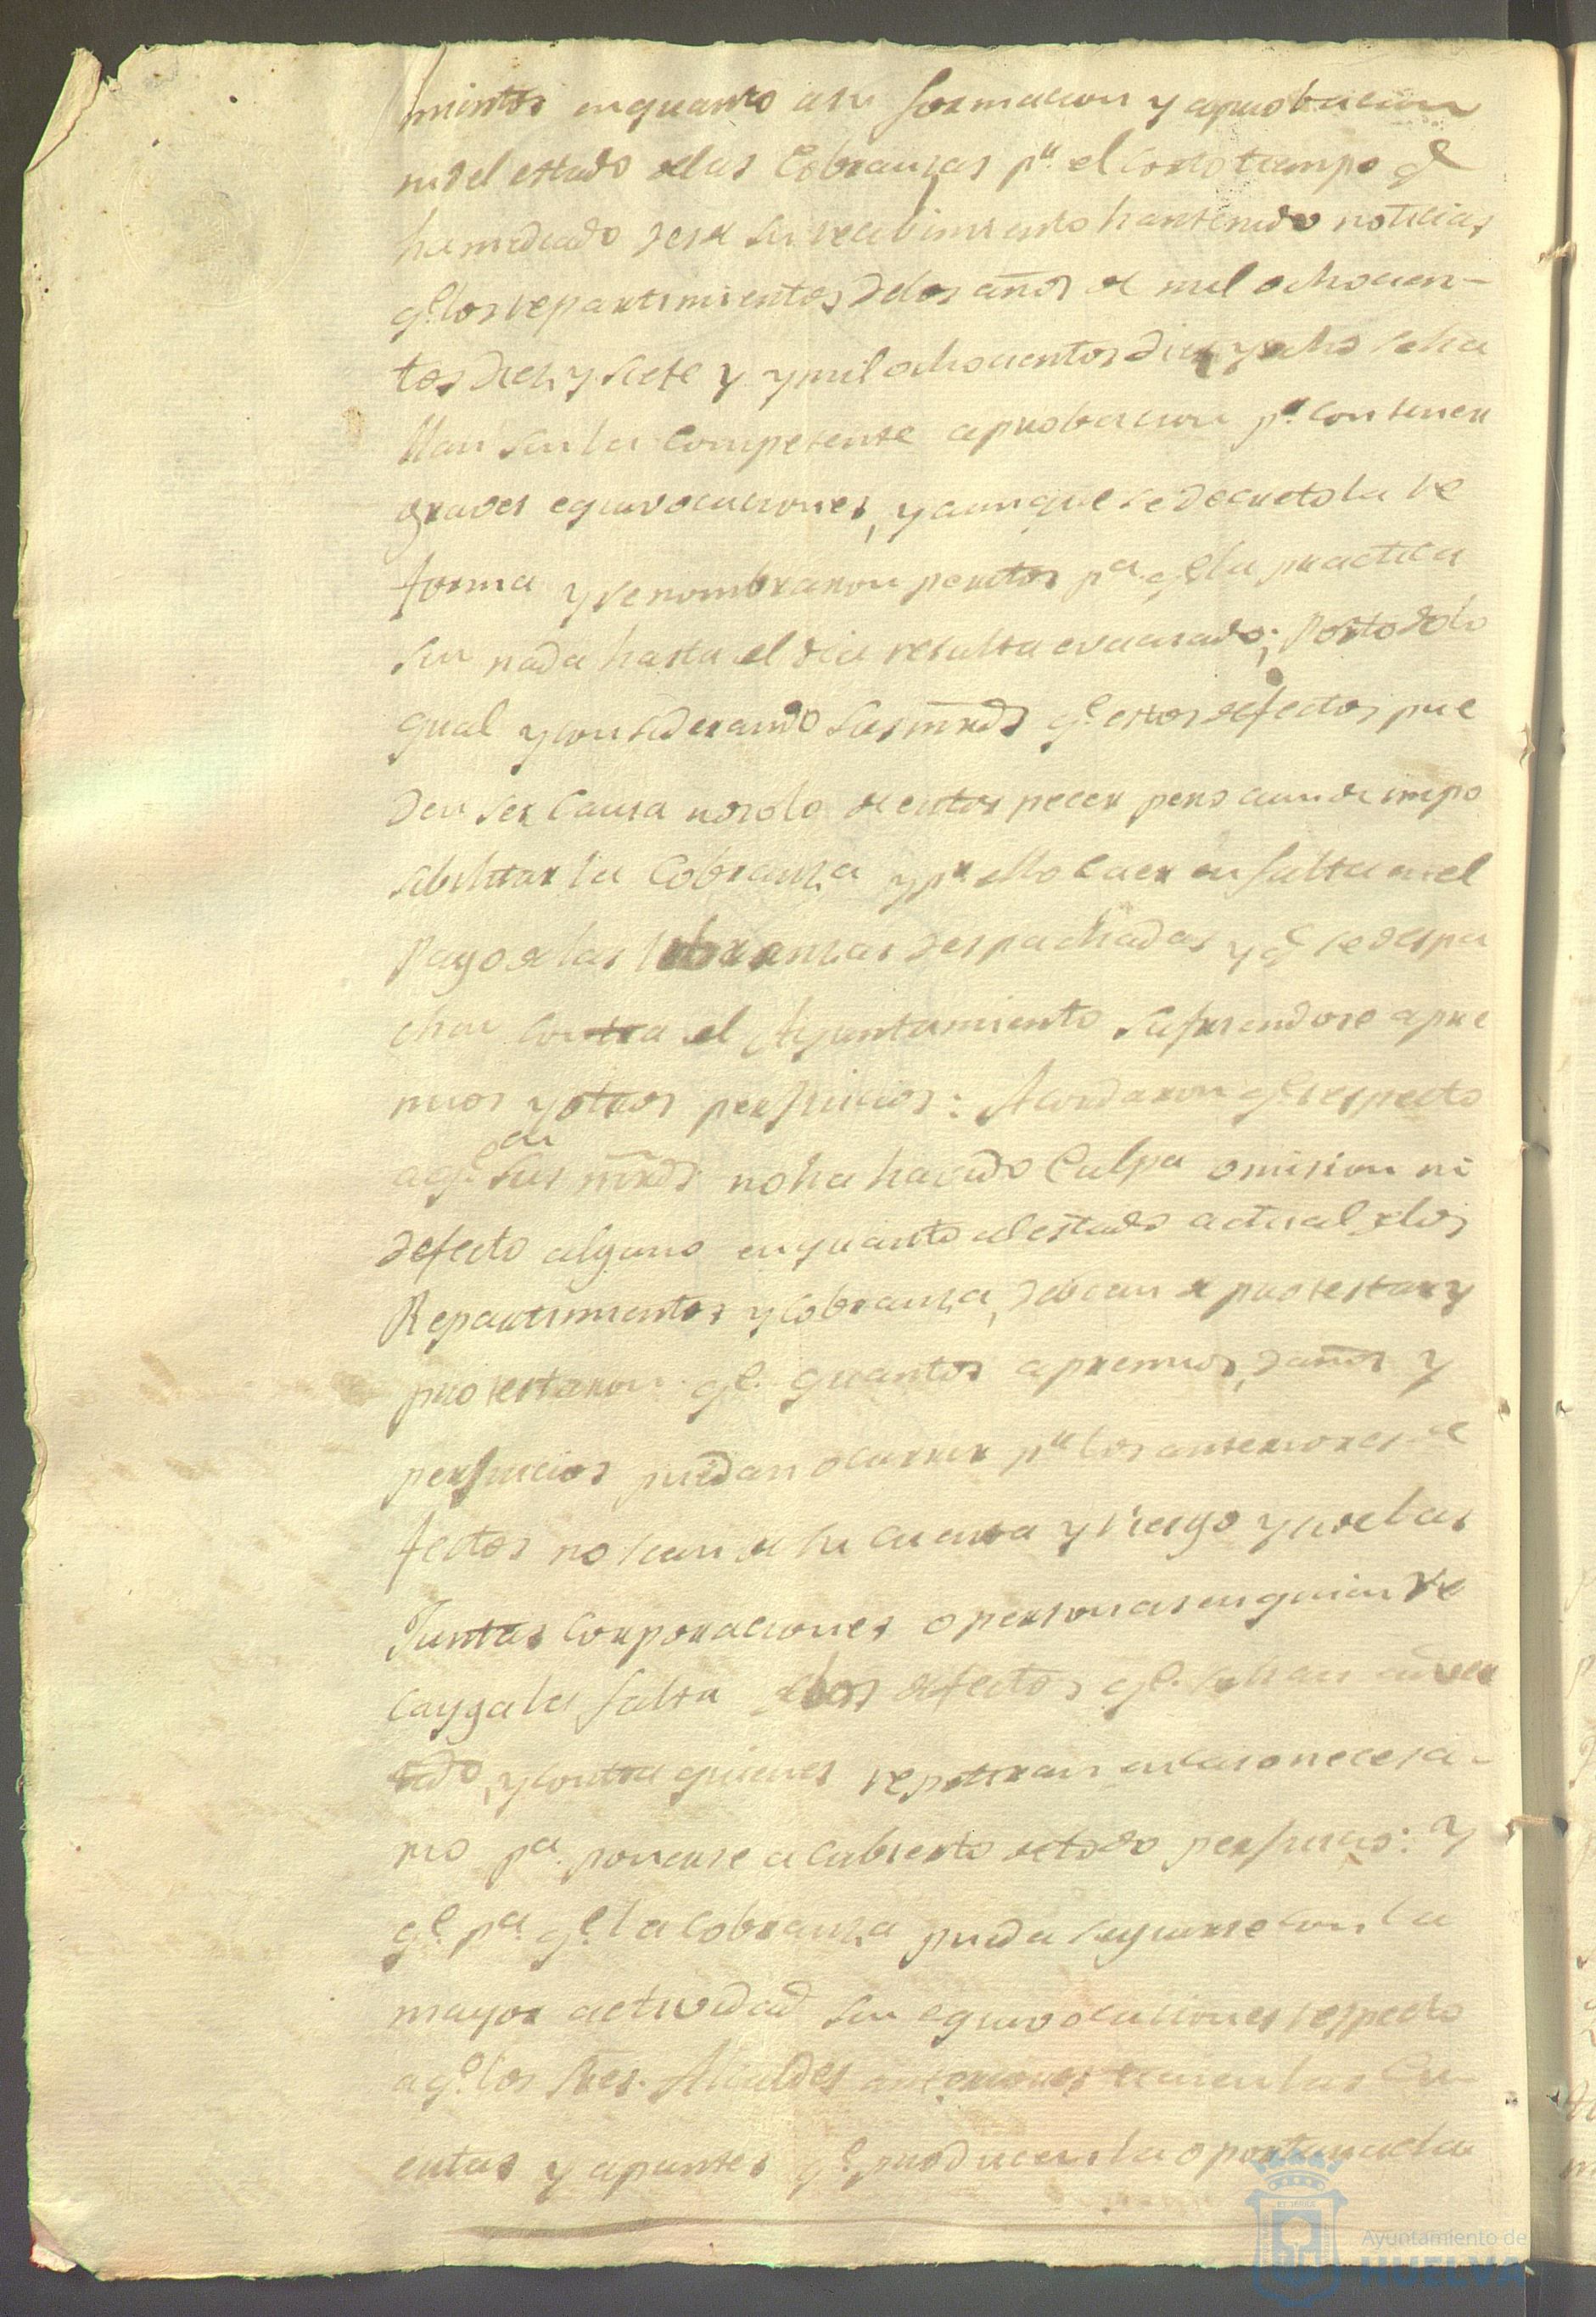 mientos enquanto asu formacion y aprobacion
nidel estado delas Cobranzas pr. el corto tiempo qe
ha mediado desde su recebimiento hantenido noticias
qe. los repartimientos delos años de mil ochocien-
tos diez y siete y ymil ochocientos diez y ocho seha
llan sin la competente aprobacion pr. contener
graves equivocaciones, y aunque se decreto la re
forma y se nombraron peritos pa. qe. la practica
sen nada hasta el dia resulta evacuado; Portodolo
qual y considerando sus mrds qe. estos defectos pue
den ser causa nosolo de entorpecer pero aun de impo
sibilitar la Cobranza y pr. ello caer en falta en el
Pago delas libranzas despachadas y qe se despa
chen contra el Ayuntamiento sufriendose apre
mios y otros perjuicios: Acordaron qe. respecto
aqe. en sus mrds. no ha havido Culpa omision ni
defecto alguno enquanto al estado actual delos
Repartimientos y Cobranza, debian de protestar y
protestaron qe. quantos apremios, daños y
perjuicios puedan ocurrir pr los anteriores de
fectos no sean de su cuenta y riesgo y si de las
Juntas Corporaciones o personas en quien re
cayga la falta delos defectos qe. se han adver
tido, y contra quienes repetiran en caso necesa-
rio pa. ponerse a cubierto de todo perjuicio: Y
qe. pa. qe. la Cobranza pueda seguirse con la
mayor actividad sin equivocaciones respecto
aqe. los Sres. Alcaldes anteriores tienen las Cu
entas y apuntes qe. producen la oportuna cla
Ayuntamiento de
HUELVA